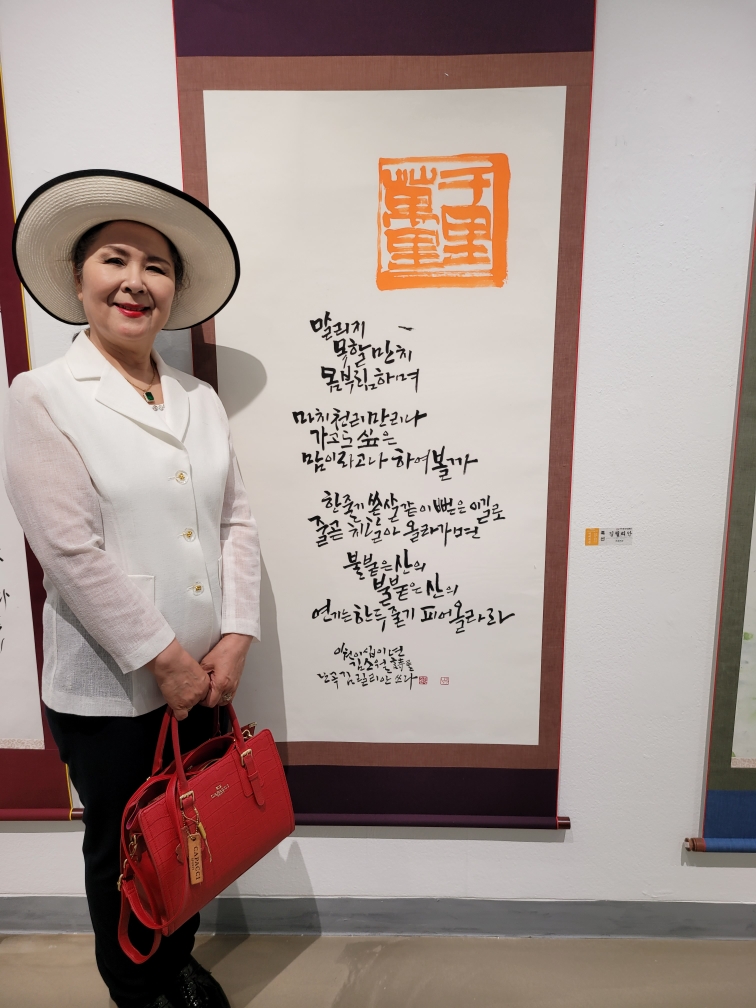 千里
萬里
말리지
못할 만치
몸부림하며
마치 천리만리나
가고도 싶은
맘이라고나 하여볼까
한줄기 쏜살같이 뻗은 이 길로
줄곧 치달아 올라가면
불붙은 산의
불붙은 산의
연기는 한두줄기 피어올라라
이천이십이년
김소월 詩를
난곡 김릴리안 쓰다
CARACCI